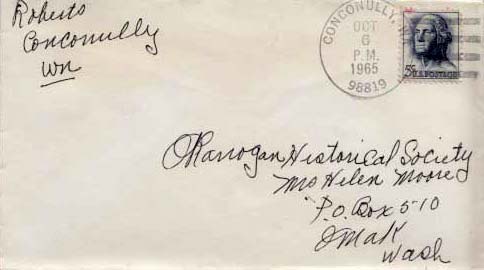 Roberts
Conconully
Wn
CONCONULLY,
OCT
6
P.M.
1965
98819
5¢ U.S. POSTAGE
Okanogan Historical Society
Mrs Helen Moore
P.O. Box 510
Omak
Wash